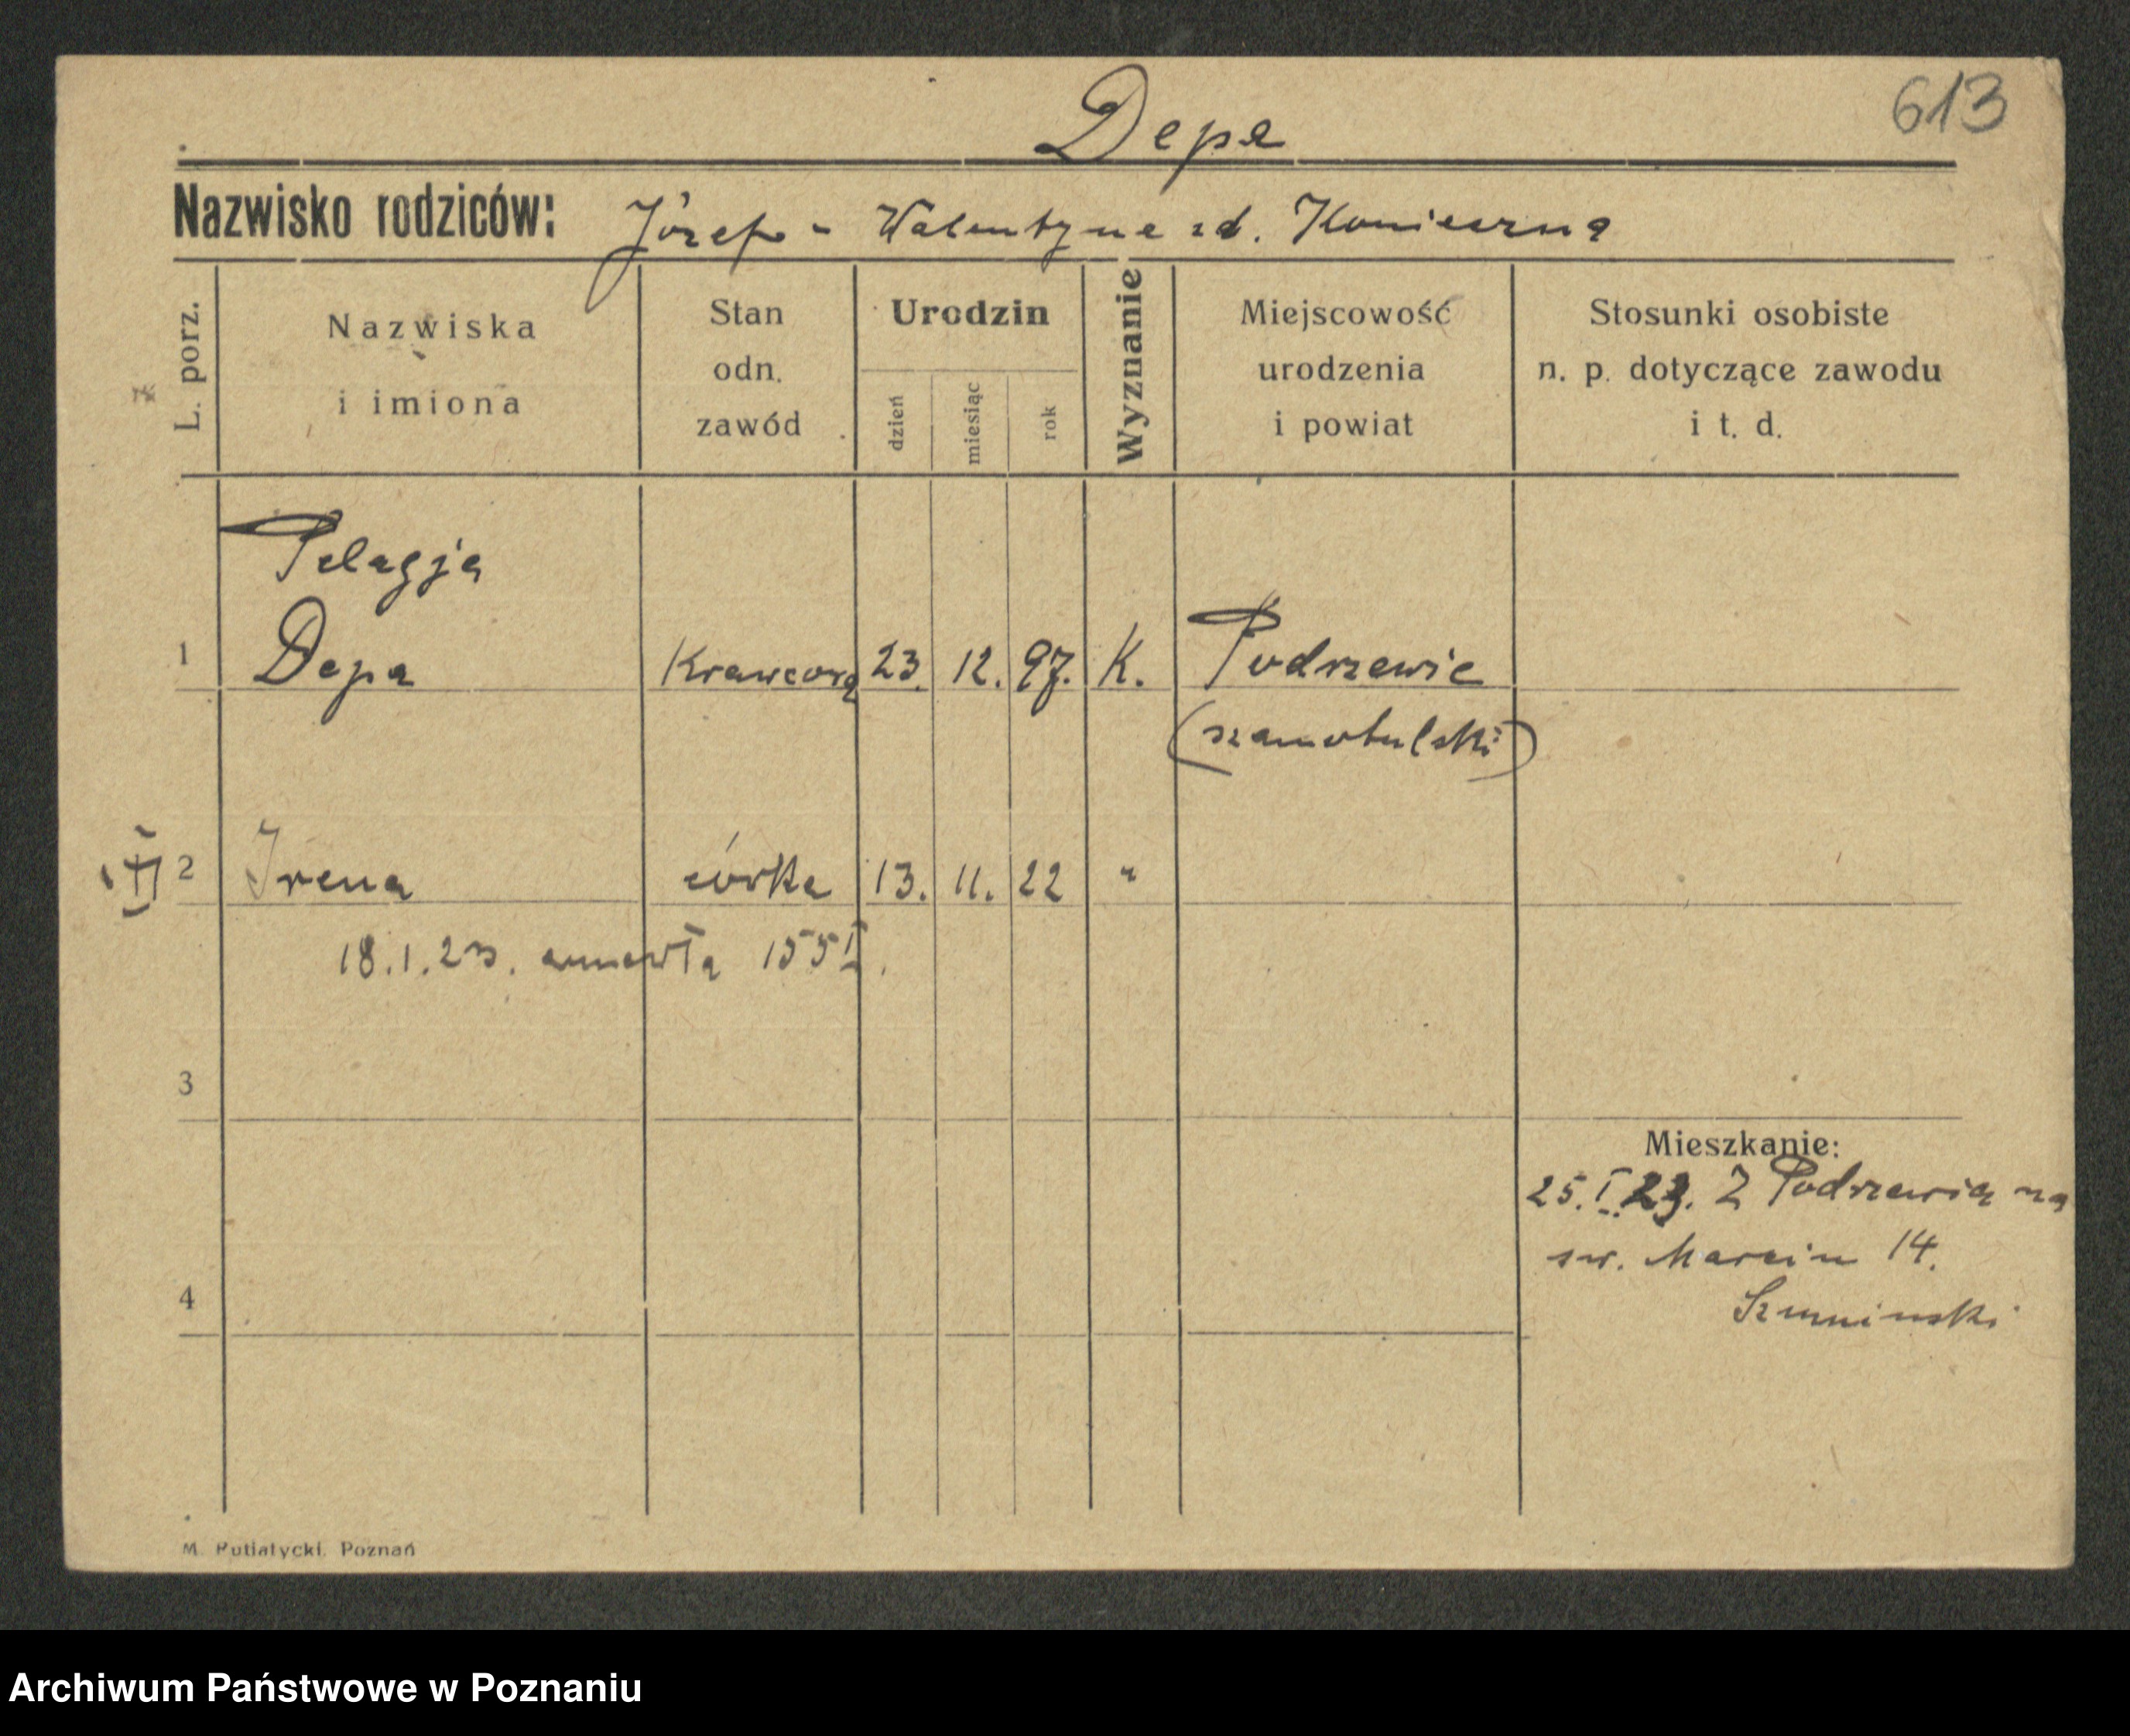 613
Depa
Nazwisko rodziców: Józef - Walentyna zd. Konieczna
L. porz.
Nazwiska i imiona
Stan odn. zawód
Urodzin
dzień
miesiąc
rok
Wyznanie
Miejscowość urodzenia i powiat
Stosunki osobiste n. p. dotyczące zawodu i t. d.
Pelagja
1 Depa Krawcową 23. 12. 97. K. Podrzewie
(szamotulski)
2 Irena córka 13. 11. 22 "
18.1.23. umarła 155
3
Mieszkanie:
25. I. 23. Z Podrzewia na
św. Marcin 14.
4
M. Putiatycki, Poznań
Archiwum Państwowe w Poznaniu